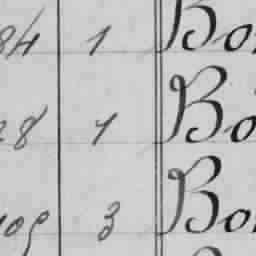 84 1 Bo
28 1 Bo
109 3 Bo